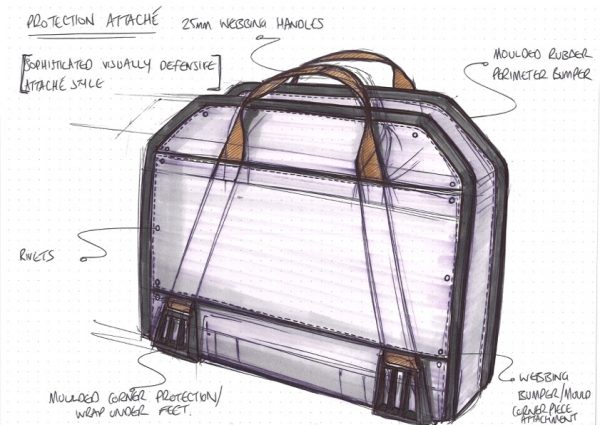 PROTECTION ATTACHÉ
25mm WEBBING HANDLES
[SOPHISTICATED VISUALLY DEFENSIVE
ATTACHÉ STYLE]
MOULDED RUBBER
PERIMETER BUMPER
RIVETS
MOULDED CORNER PROTECTION/
WRAP UNDER FEET.
WEBBING
BUMPER/MOULD
CORNER PIECE
ATTACHMENT